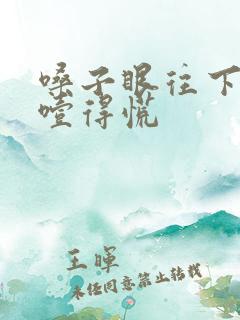 嗓子眼往下
噎得慌
王暉
未经同意禁止转载